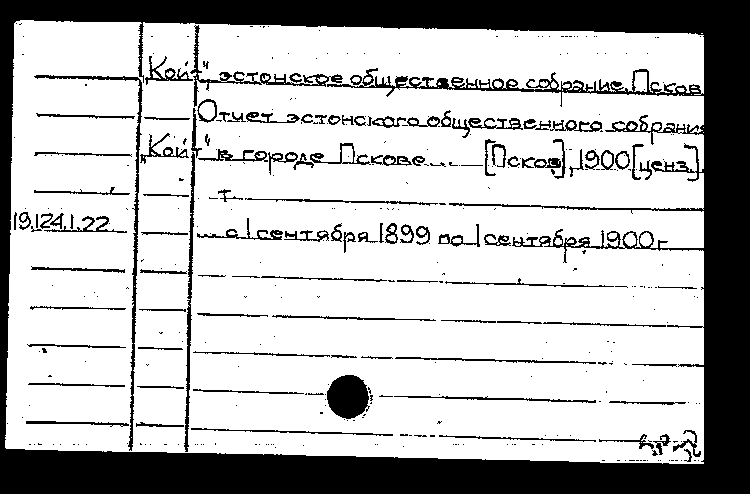 „Койт“, эстонское общественное собрание. Псков
Отчет эстонского общественного собрания
„Койт“ в городе Пскове... [Псков], 1900 [ценз].
т.
19.124.1.22
... с 1 сентября 1899 по 1 сентября 1900 г